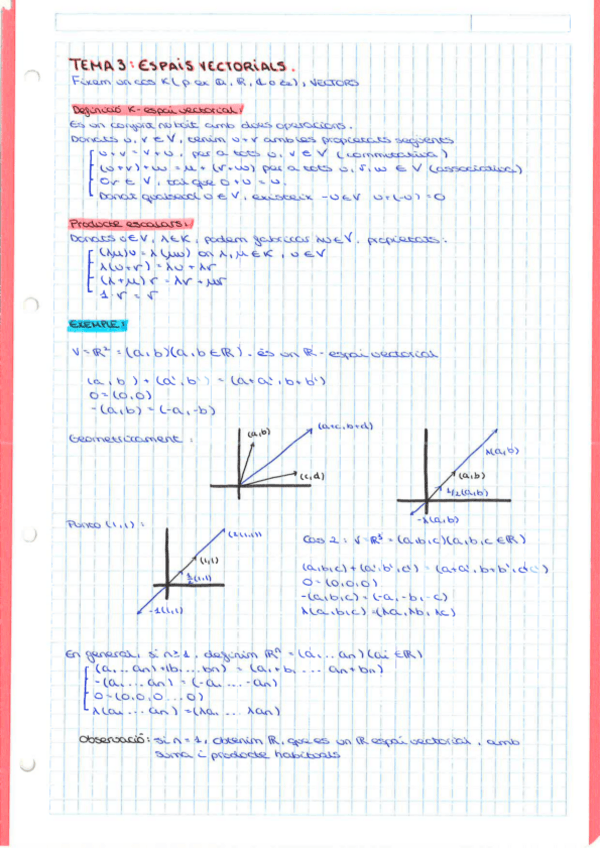 TEMA 3: ESPAIS VECTORIALS.
Fixem un cos K (p ex Q, R, C o Z₂), VECTORS
Definició K-espai vectorial:
És un conjunt no buit amb dues operacions.
Donats u, v ∈ V, tenim u+v amb les propietats següents
u+v = v+u, per a tots u, v ∈ V (commutativa)
(u+v)+w = u+(v+w) per a tots u, v, w ∈ V (associativa)
0v ∈ V, tal que 0+u = u.
Donat qualsevol u ∈ V, existeix -u ∈ V u+(-u) = 0
Producte escalars:
Donats u ∈ V, λ ∈ K, podem fabricar λu ∈ V. propietats:
(λμ)u = λ(μu) on λ, μ ∈ K, u ∈ V
λ(u+v) = λu + λv
(λ+μ)v = λv + μv
1·v = v
EXEMPLE:
V = R² = (a,b)(a,b ∈ R). és un R-espai vectorial
(a,b) + (a',b') = (a+a', b+b')
0 = (0,0)
-(a,b) = (-a,-b)
Geometricament:
(a,b)
(a+c, b+d)
(c,d)
λ(a,b)
(a,b)
1/2(a,b)
-λ(a,b)
(1,1):
(1,1)
1/2(1,1)
-1(1,1)
Cas 2: V = R³ = (a,b,c)(a,b,c ∈ R)
(a,b,c) + (a',b',c') = (a+a', b+b', c+c')
0 = (0,0,0)
-(a,b,c) = (-a,-b,-c)
λ(a,b,c) = (λa, λb, λc)
En general, si n≥1, definim Rⁿ = (a₁...an)(ai ∈ R)
(a₁...an) + (b₁...bn) = (a₁+b₁ ... an+bn)
-(a₁...an) = (-a₁...-an)
0 = (0,0,0...0)
λ(a₁...an) = (λa₁...λan)
Observació: si n = 1, obtenim R, que es un R espai vectorial, amb
suma i producte habituals